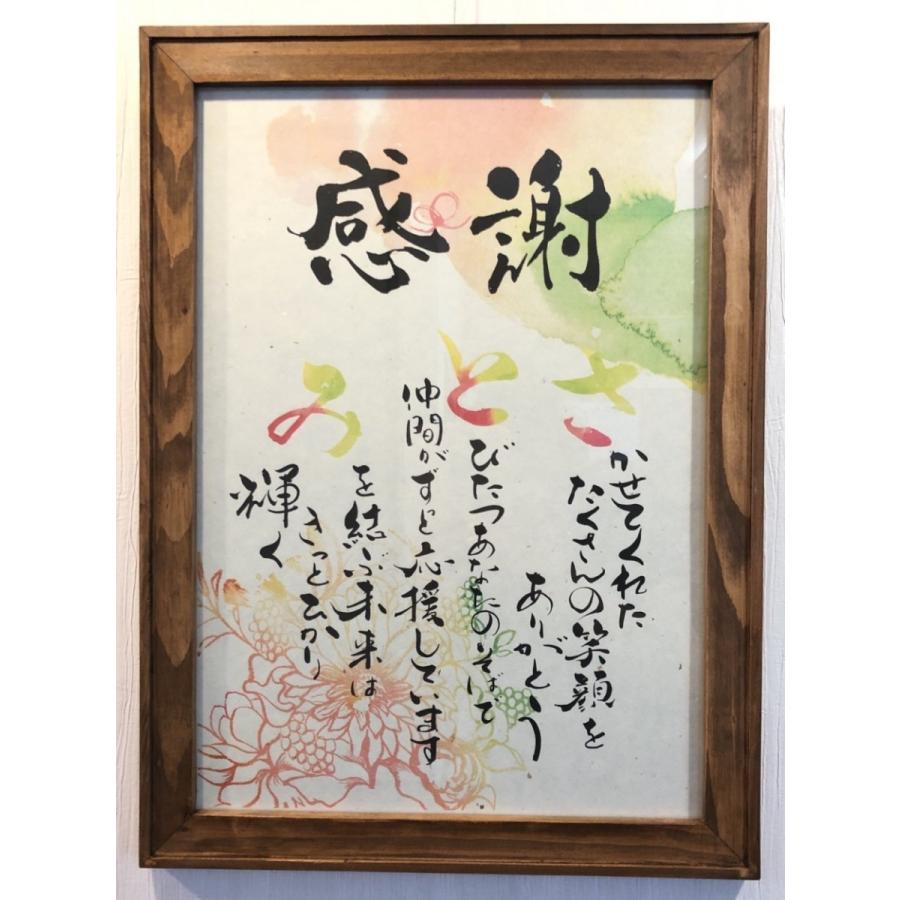 感謝
さかせてくれた
たくさんの笑顔を
ありがとう
とびたつあなたのそばで
仲間がずっと応援しています
みを結ぶ未来は
きっとひかり
輝く